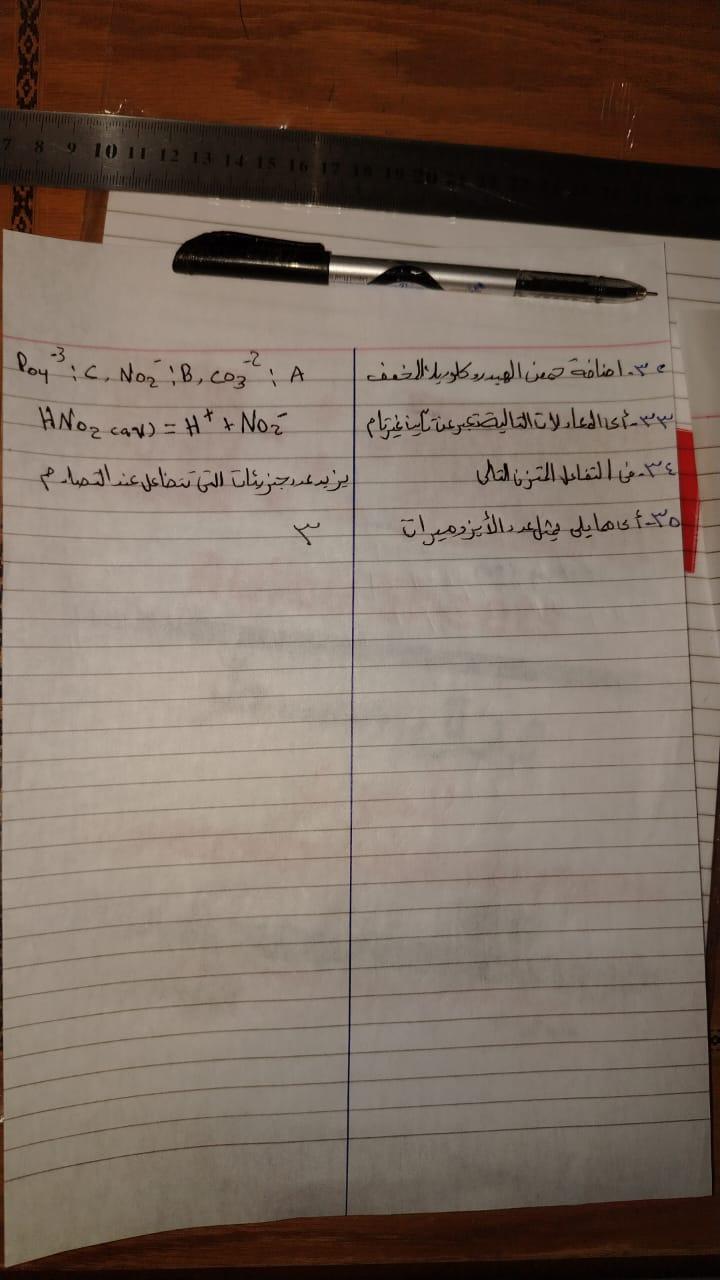 7 8 9 10 11 12 13 14 15 16 17 18 19 20
٣٢- اضافة حمض الهيدروكلوريك المخفف A : CO3-2 ، B : NO2- ، C : PO4-3
٣٣- أى المعادلات التالية تعبر عن تأين غير تام HNO2(aq) = H+ + NO2-
٣٤- فى التفاعل المتزن التالى يزيد عدد جزيئات التى تتفاعل عند التصادم
٣٥- أى مما يلى يمثل عدد الأيزوميرات ٣